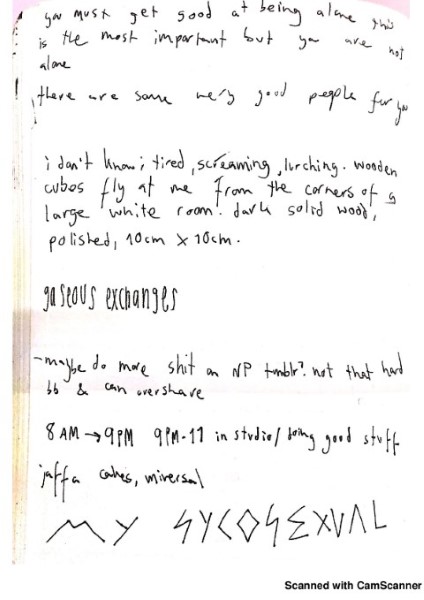 you must get good at being alone this
is the most important but you are not
alone
there are some very good people for you
i don't know i tired, screaming, lurching. wooden
cubes fly at me from the corners of a
large white room. dark solid wood,
polished, 10cm x 10cm.
gaseous exchanges
-maybe do more shit on NP tumblr? not that hard
bb & can overshare
8AM → 9PM 9PM-11 in studio/ doing good stuff
jaffa cakes,
MY SYCOSEXUAL
Scanned with CamScanner